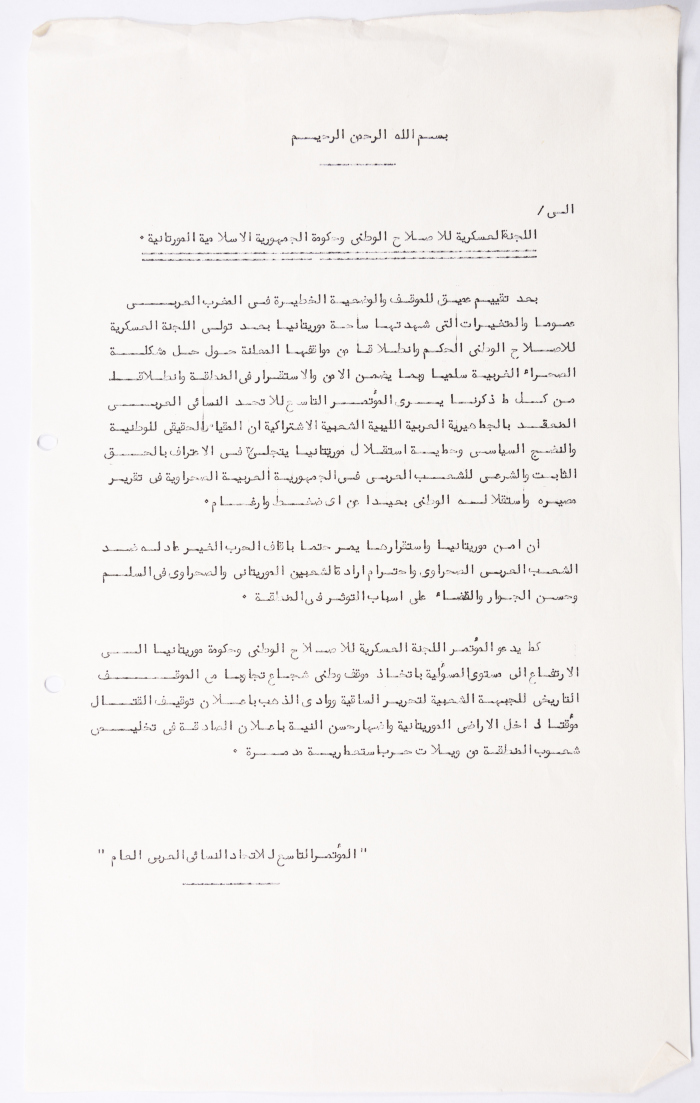 بسم الله الرحمن الرحيم
الى /
اللجنة العسكرية للاصلاح الوطنى وحكومة الجمهورية الاسلامية الموريتانية •
بعد تقييم عميق للموقف والوضعية الخطيرة فى المغرب العربى
عموما والمتغيرات التى شهدتها ساحة موريتانيا بعد تولى اللجنة العسكرية
للاصلاح الوطنى الحكم وانطلاقا من مواقفها المعلنة حول حل مشكلة
الصحراء الغربية سلميا وبما يضمن الامن والاستقرار فى المنطقة وانطلاقا
من كل ما ذكرنا يرى المؤتمر التاسع للاتحاد النسائى العربى
المنعقد بالجماهيرية العربية الليبية الشعبية الاشتراكية ان المقياس الحقيقى للوطنية
والنضج السياسى وحماية استقلال موريتانيا يتجلى فى الاعتراف بالحق
الثابت والشرعى للشعب العربى فى الجمهورية العربية الصحراوية فى تقرير
مصيره واستقلاله الوطنى بعيدا عن اى ضغط وارغام •
ان امن موريتانيا واستقرارها يمر حتما باقاف الحرب الغير عادله ضد
الشعب العربى الصحراوى واحترام ارادة الشعبين الموريتانى والصحراوى فى السلم
وحسن الجوار والقضاء على اسباب التوتر فى المنطقة •
كما يدعو المؤتمر اللجنة العسكرية للاصلاح الوطنى وحكومة موريتانيا الى
الارتفاع الى مستوى المسؤلية باتخاذ موقف وطنى شجاع تجاوبا مع الموقف
التاريخى للجبهة الشعبية لتحرير الساقية ووادى الذهب باعلان توقيف القتال
مؤقتا داخل الاراضى الموريتانية واظهار حسن النية باعلان الصادقة فى تخليص
شعوب المنطقة من ويلات حرب استعمارية مدمرة •
" المؤتمر التاسع للاتحاد النسائى العربى العام "